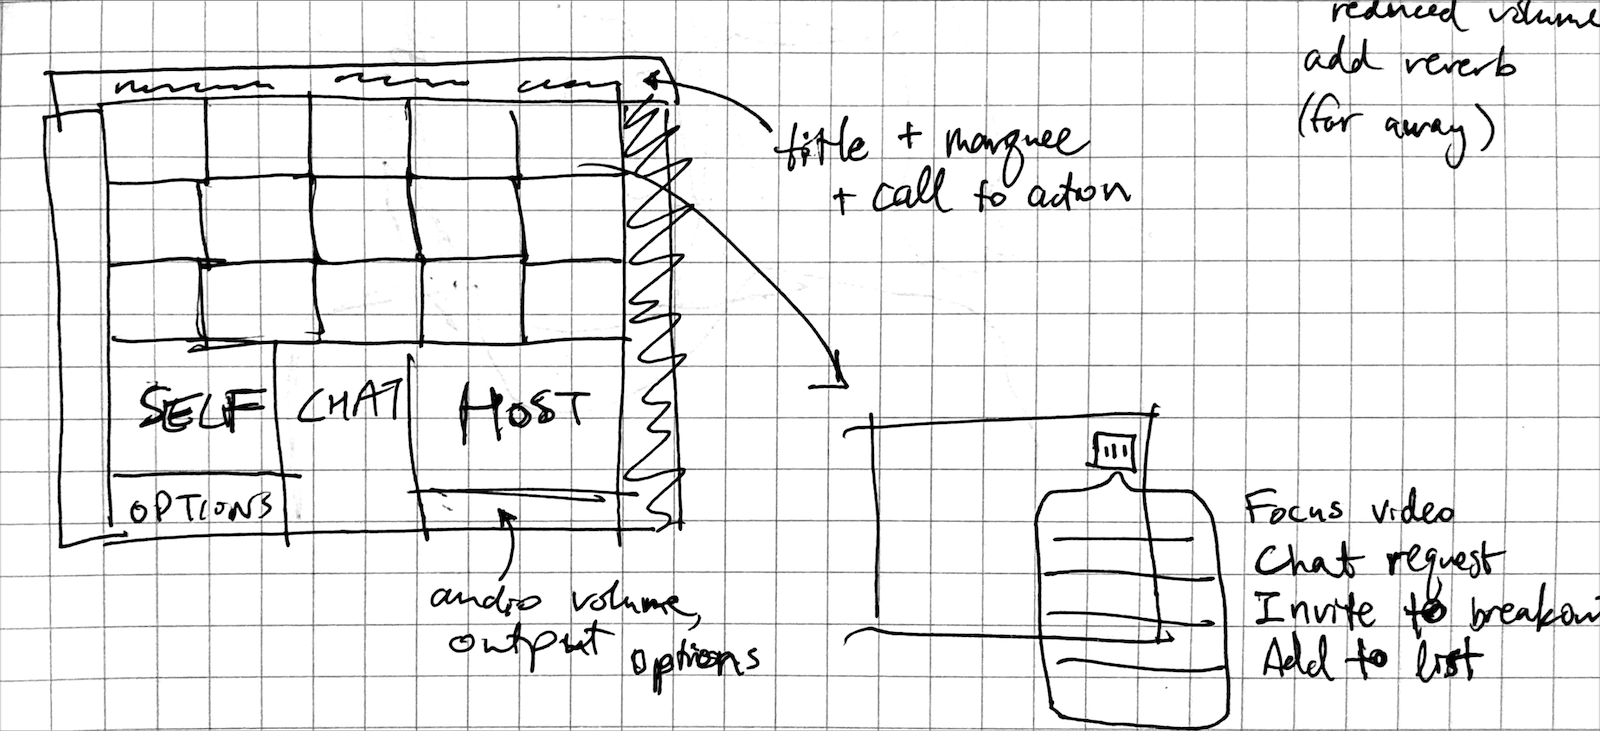 reduced volume
add reverb
(far away)
title + marquee
+ call to action
SELF
CHAT
HOST
OPTIONS
audio volume,
output options
Focus video
Chat request
Invite to breakou
Add to list